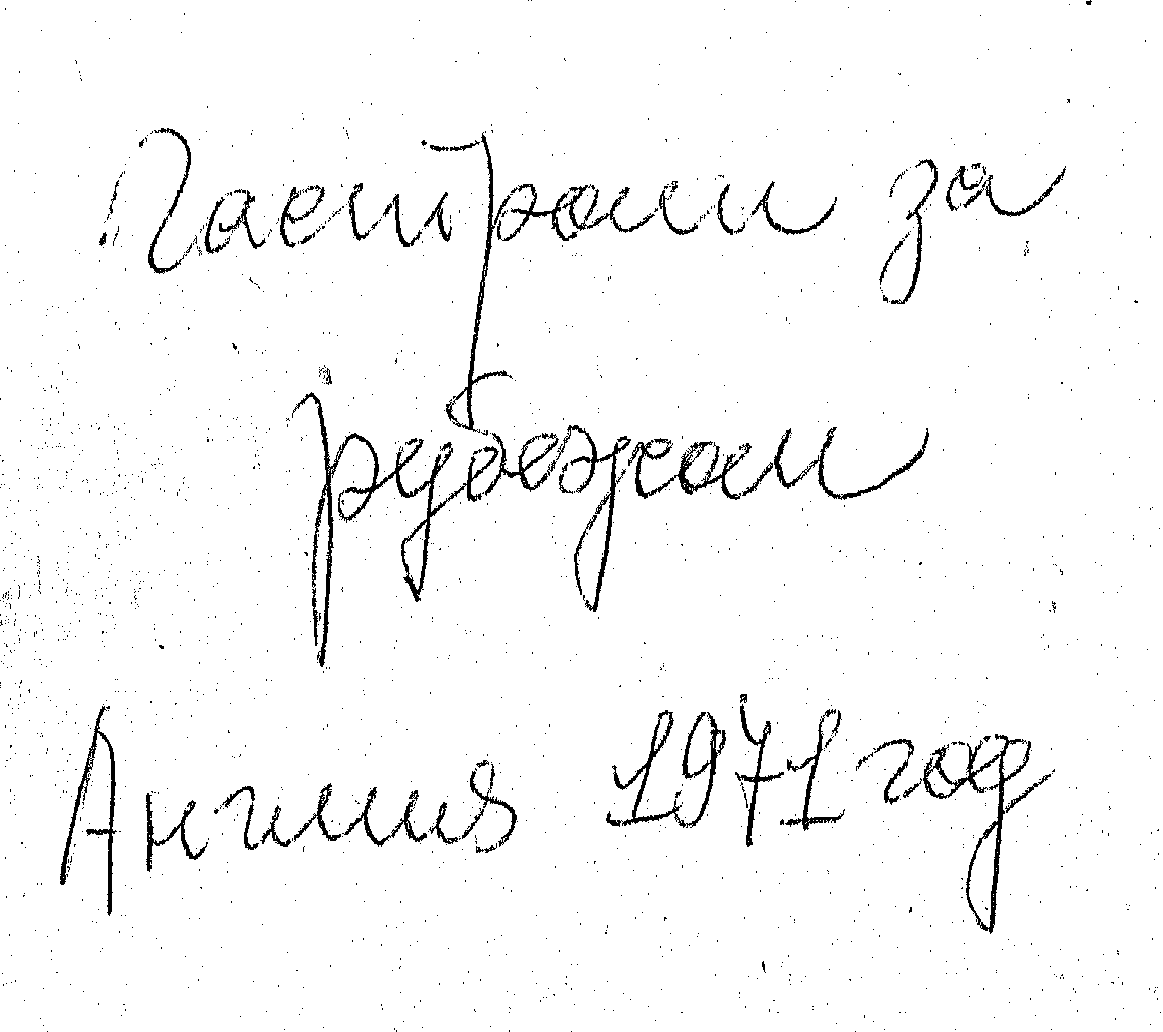 Гастроли за
рубежом
Англия 1971 год